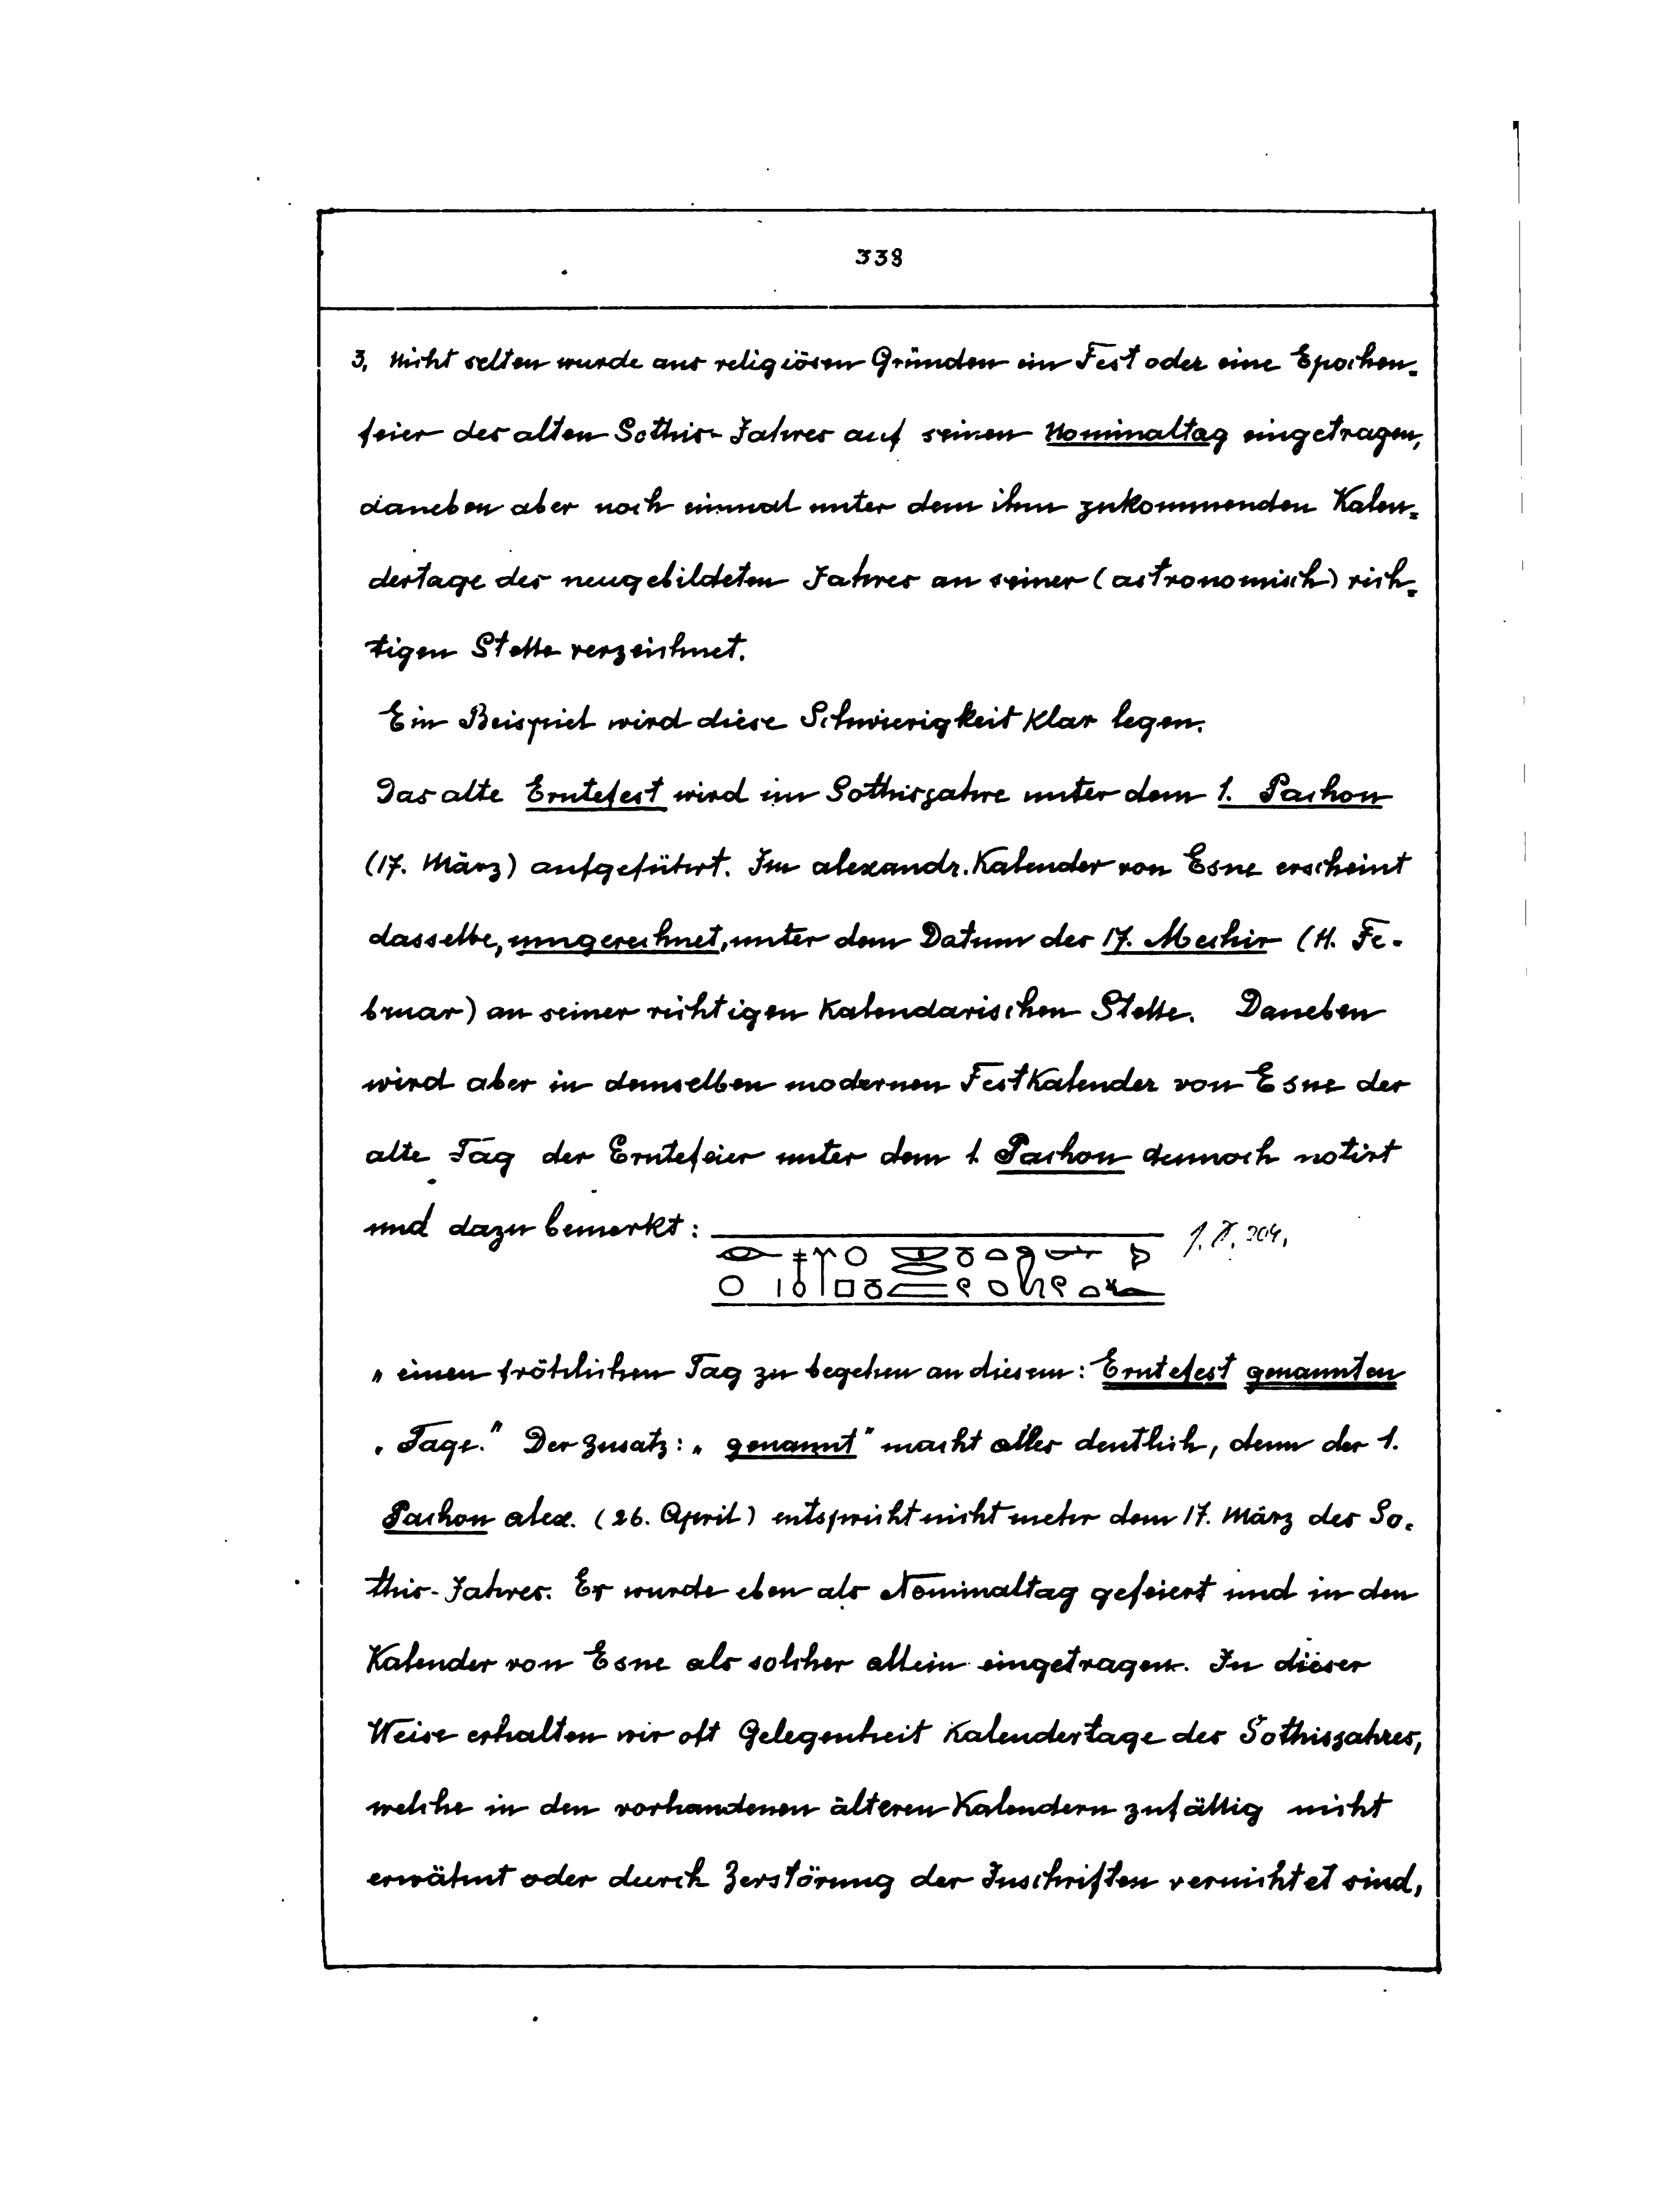 338
3, Nicht selten wurde aus religiösen Gründen ein Fest oder eine Epochen-
feier des alten Sothis-Jahres auf seinen Nominaltag eingetragen,
daneben aber noch einmal unter dem ihm zukommenden Kalen-
dertage des neugebildeten Jahres an seiner (astronomisch) rich-
tigen Stelle verzeichnet.
Ein Beispiel wird diese Schwierigkeit klar legen.
Das alte Erntefest wird im Sothisjahre unter dem 1. Pachon
(17. März) aufgeführt. Im alexandr. Kalender von Esne erscheint
dasselbe, umgerechnet, unter dem Datum des 17. Mechir (11. Fe-
bruar) an seiner richtigen kalendarischen Stelle. Daneben
wird aber in demselben modernen Festkalender von Esne der
alte Tag der Erntefeier unter dem 1. Pachon dennoch notirt
und dazu bemerkt:
„einen fröhlichen Tag zu begehen an diesem: Erntefest genannten
„Tage." Der Zusatz: „genannt" macht alles deutlich, denn der 1.
Pachon alex. (26. April) entspricht nicht mehr dem 17. März des So-
this-Jahres. Er wurde eben als Nominaltag gefeiert und in den
Kalender von Esne als solcher allein eingetragen. In dieser
Weise erhalten wir oft Gelegenheit Kalendertage des Sothisjahres,
welche in den vorhandenen älteren Kalendern zufällig nicht
erwähnt oder durch Zerstörung der Inschriften vernichtet sind,